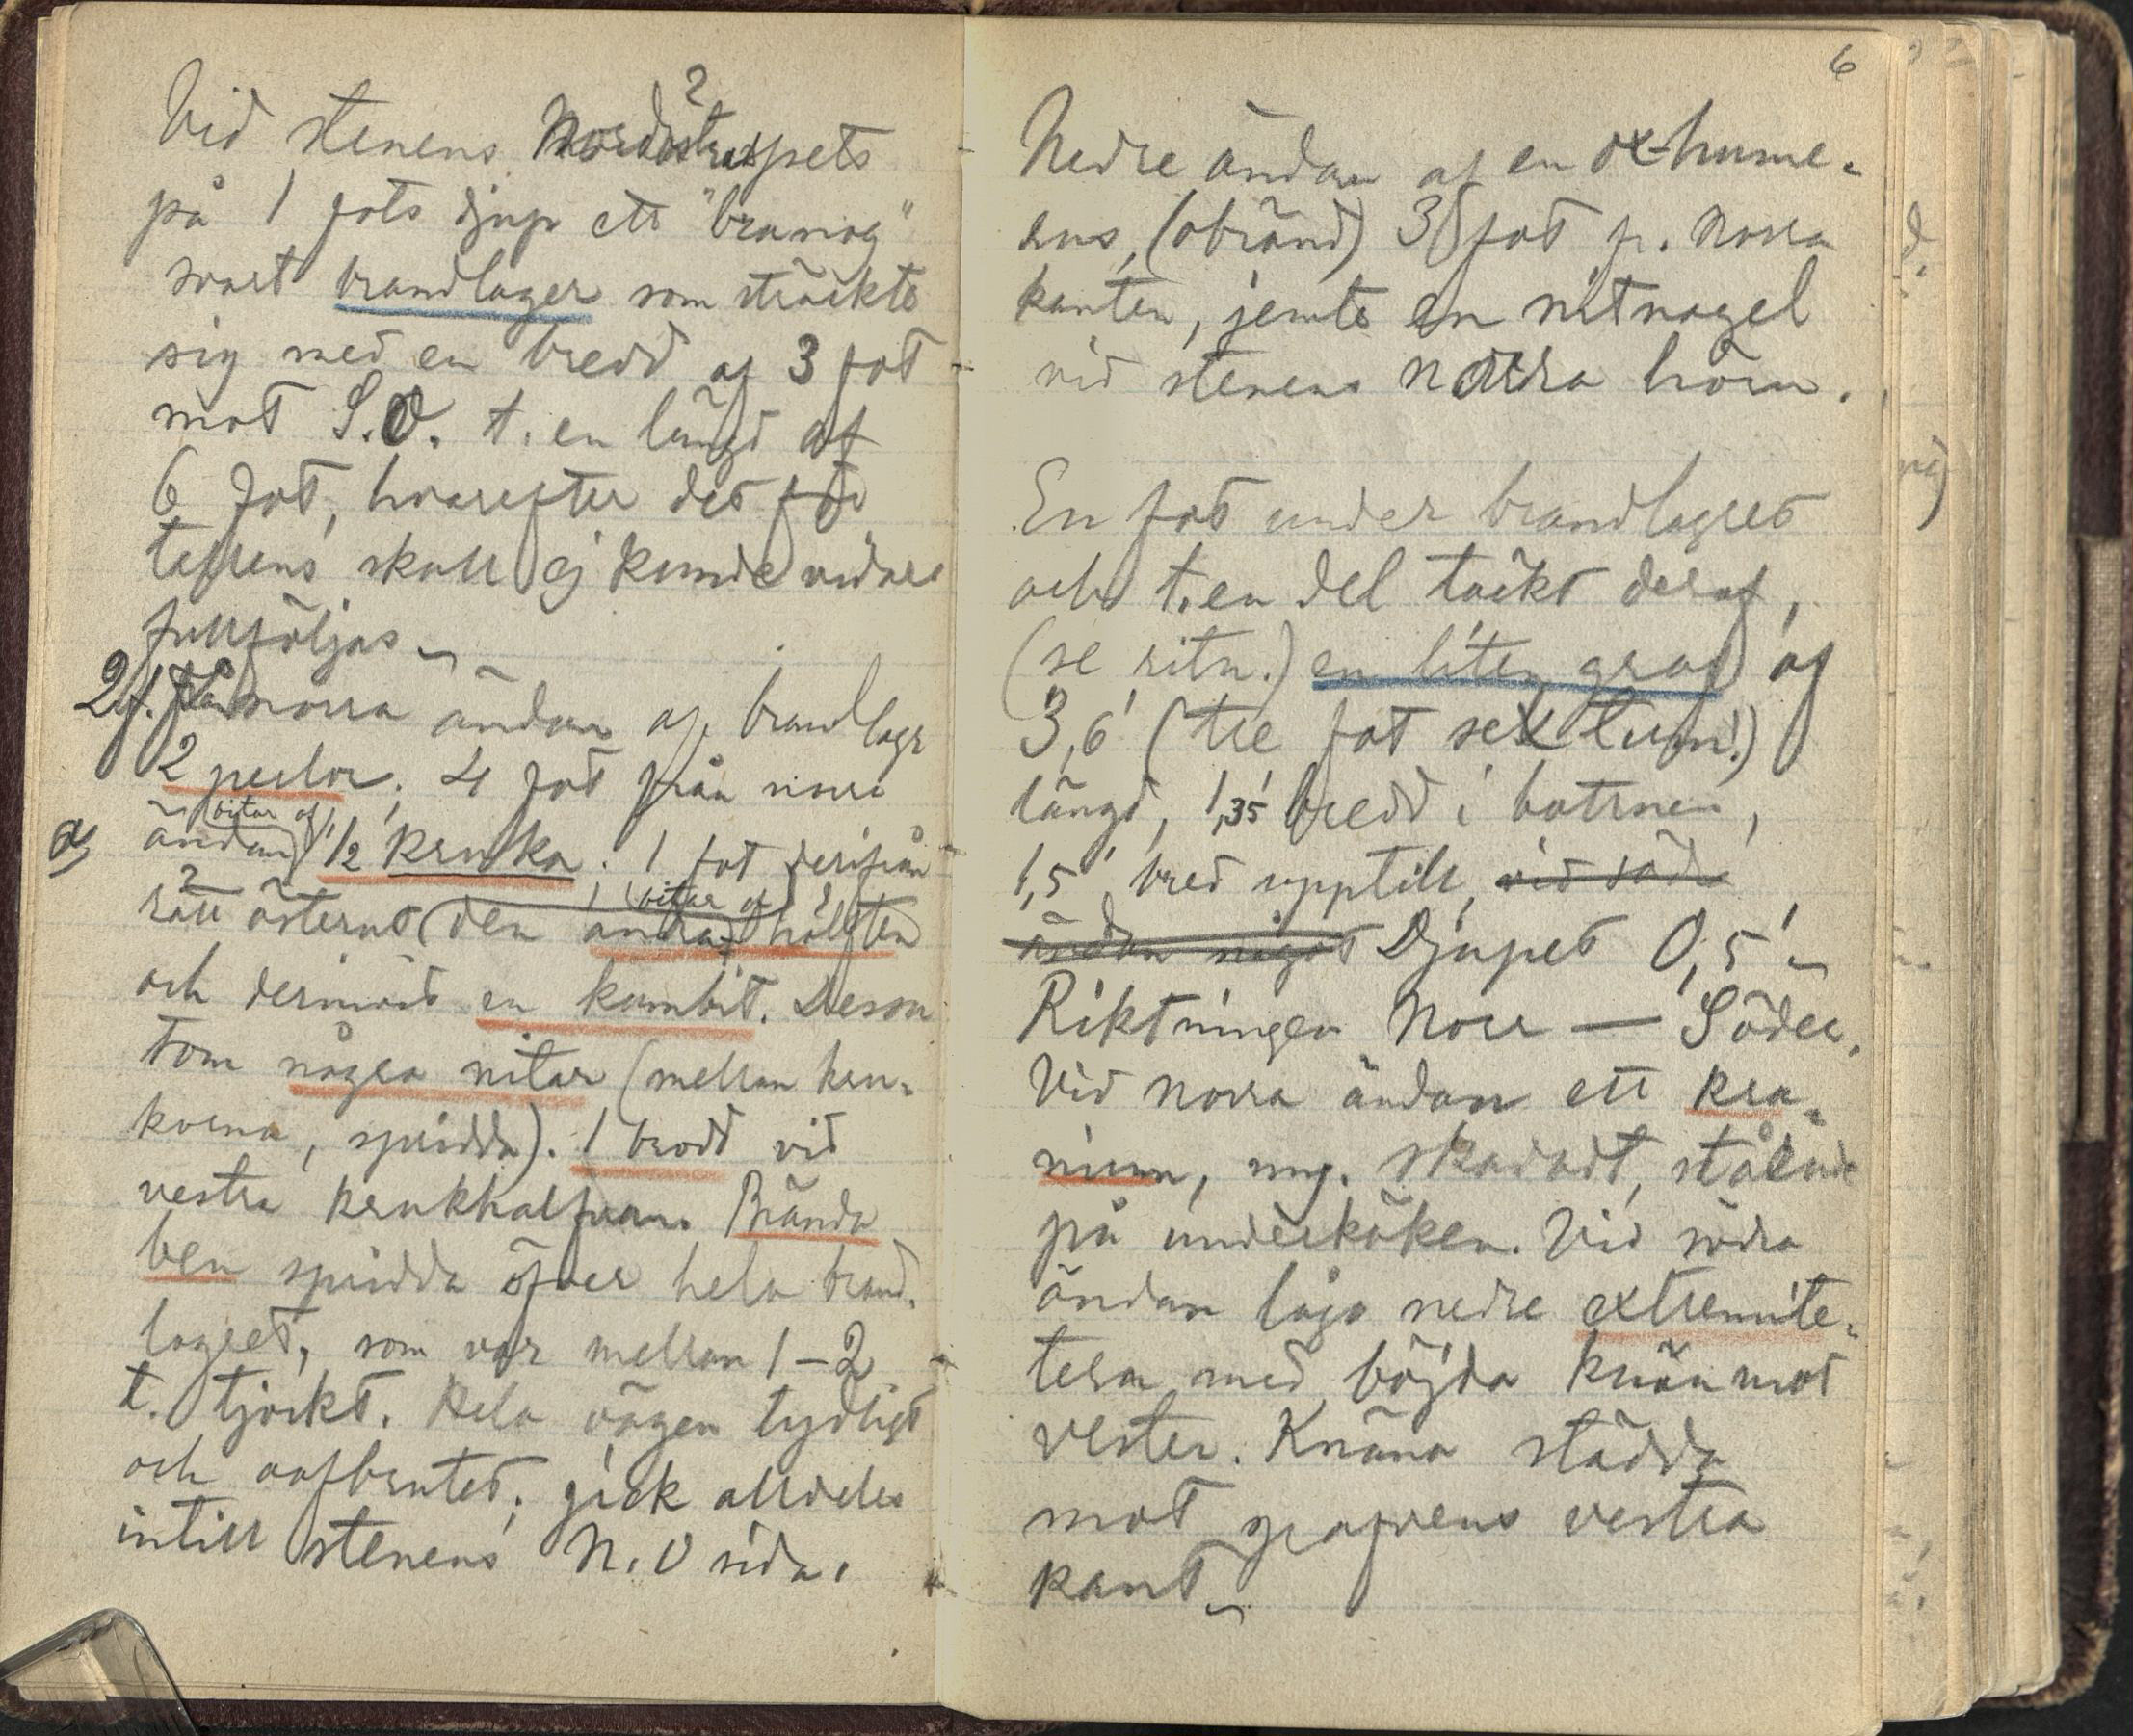 2
Vid stenens Nordöstra spets
på 1 fots djup ett "branog"
svart brandlager som sträckte
sig med en bredd af 3 fot
mot S.O. t. en längd af
6 fot, hvarefter det för
täppens skull ej kunde vidare
fullföljas
2 f. från norra ändan af brandlagr
2 perlor; 4 fot från norra
bitar af
ändan 1/2 kruka. 1 fot derifrån
2 bitar af
rätt österut (den andra hälften
och dermed en kambit. Dessu
tom några nitar (mellan kru-
korna, spridda). 1 brodd vid
vestra krukhalfvan. Brända
ben spridda öfver hela brand.
lagret, som var mellan 1-2
t. tjockt. Hela vägen tydligt
och oafbrutet; gick alldeles
intill stenens N.O sida.
6
Nedre ändan af en ox-hume-
rus, (obränd) 3 fot fr. norra
kanten, jemte en nitnagel
vid stenens norra hörn.
En fot under brandlagret
och t. en del täckt deraf,
(se ritn.) en liten graf af
3,6' (tre fot sex tum!)
längd, 1,35' bredd i bottnen,
1,5' bred upptill, vid södra
ändan något Djupet 0,5'
Riktningen Norr — Söder.
Vid norra ändan ett kra-
nium, mg. skadadt, stående
på underkäken. Vid södra
ändan låga nedre extremite-
terna med böjda knän mot
vester. Knäna stödda
mot grafvens vestra
kant